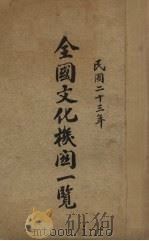 民國二十三年
全國文化機関一覽